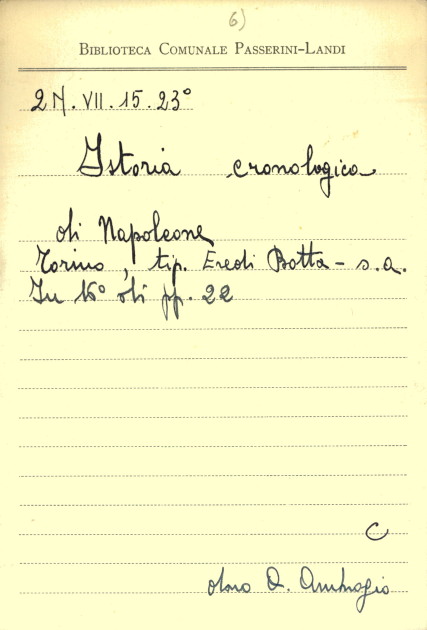 6)
BIBLIOTECA COMUNALE PASSERINI-LANDI
2 N. VII. 15. 23°
Istoria cronologica
di Napoleone
Torino, tip. Eredi Botta - s.a.
In 16° di pp. 22
C
dono A. Ambrogio